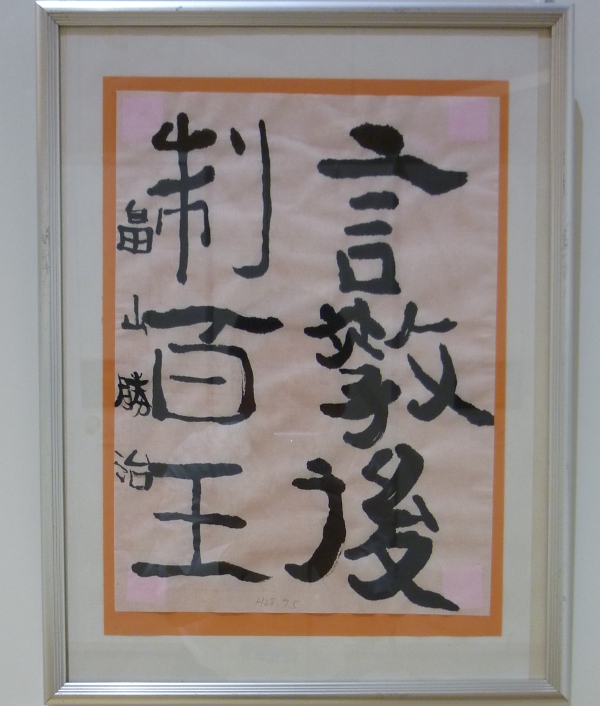 言教後
制百王
畠山勝治
H28.7.5